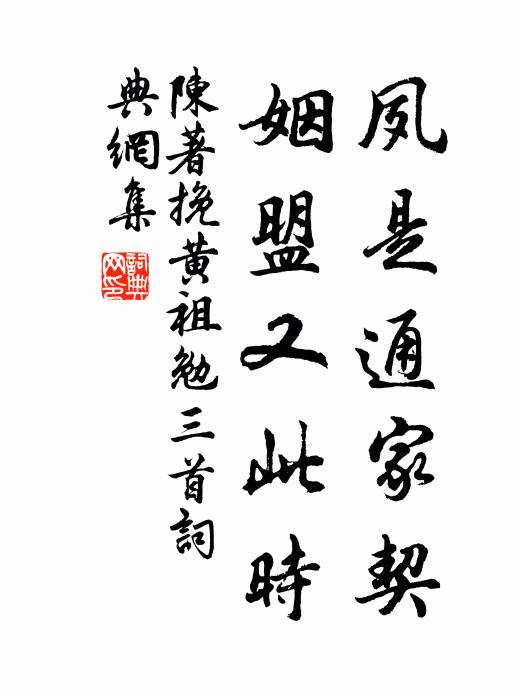 夙是通家契
姻盟又此時
陳著挽黄祖勉三首詞
典網集
詞典
网印